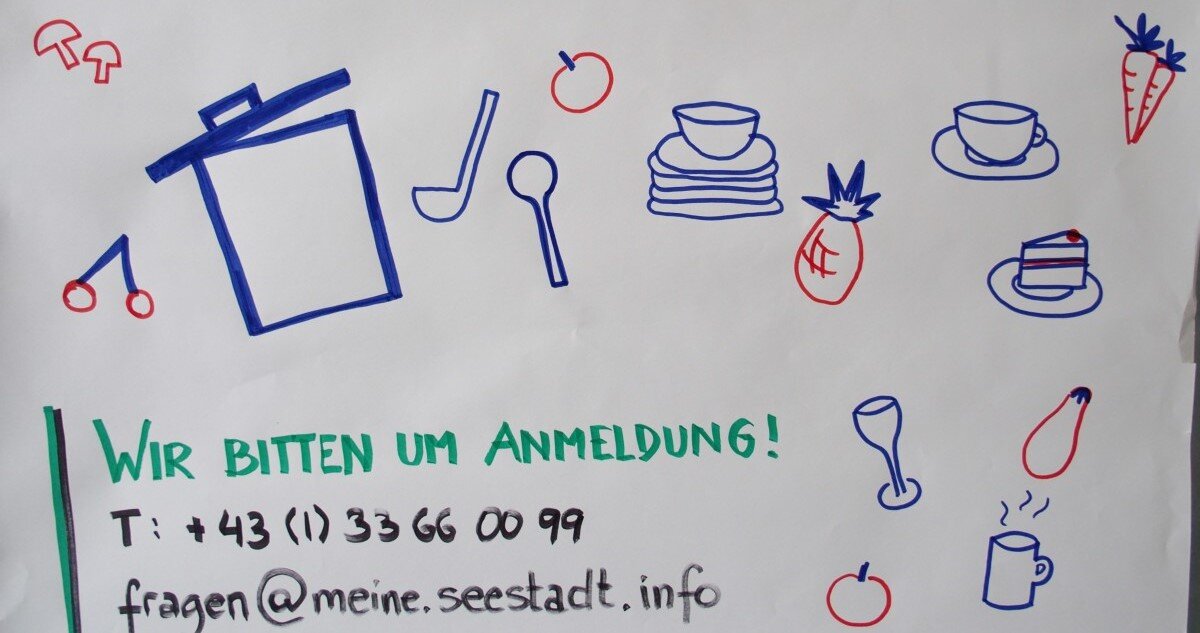 WIR BITTEN UM ANMELDUNG!
T: +43 (1) 33 66 00 99
fragen@meine.seestadt.info